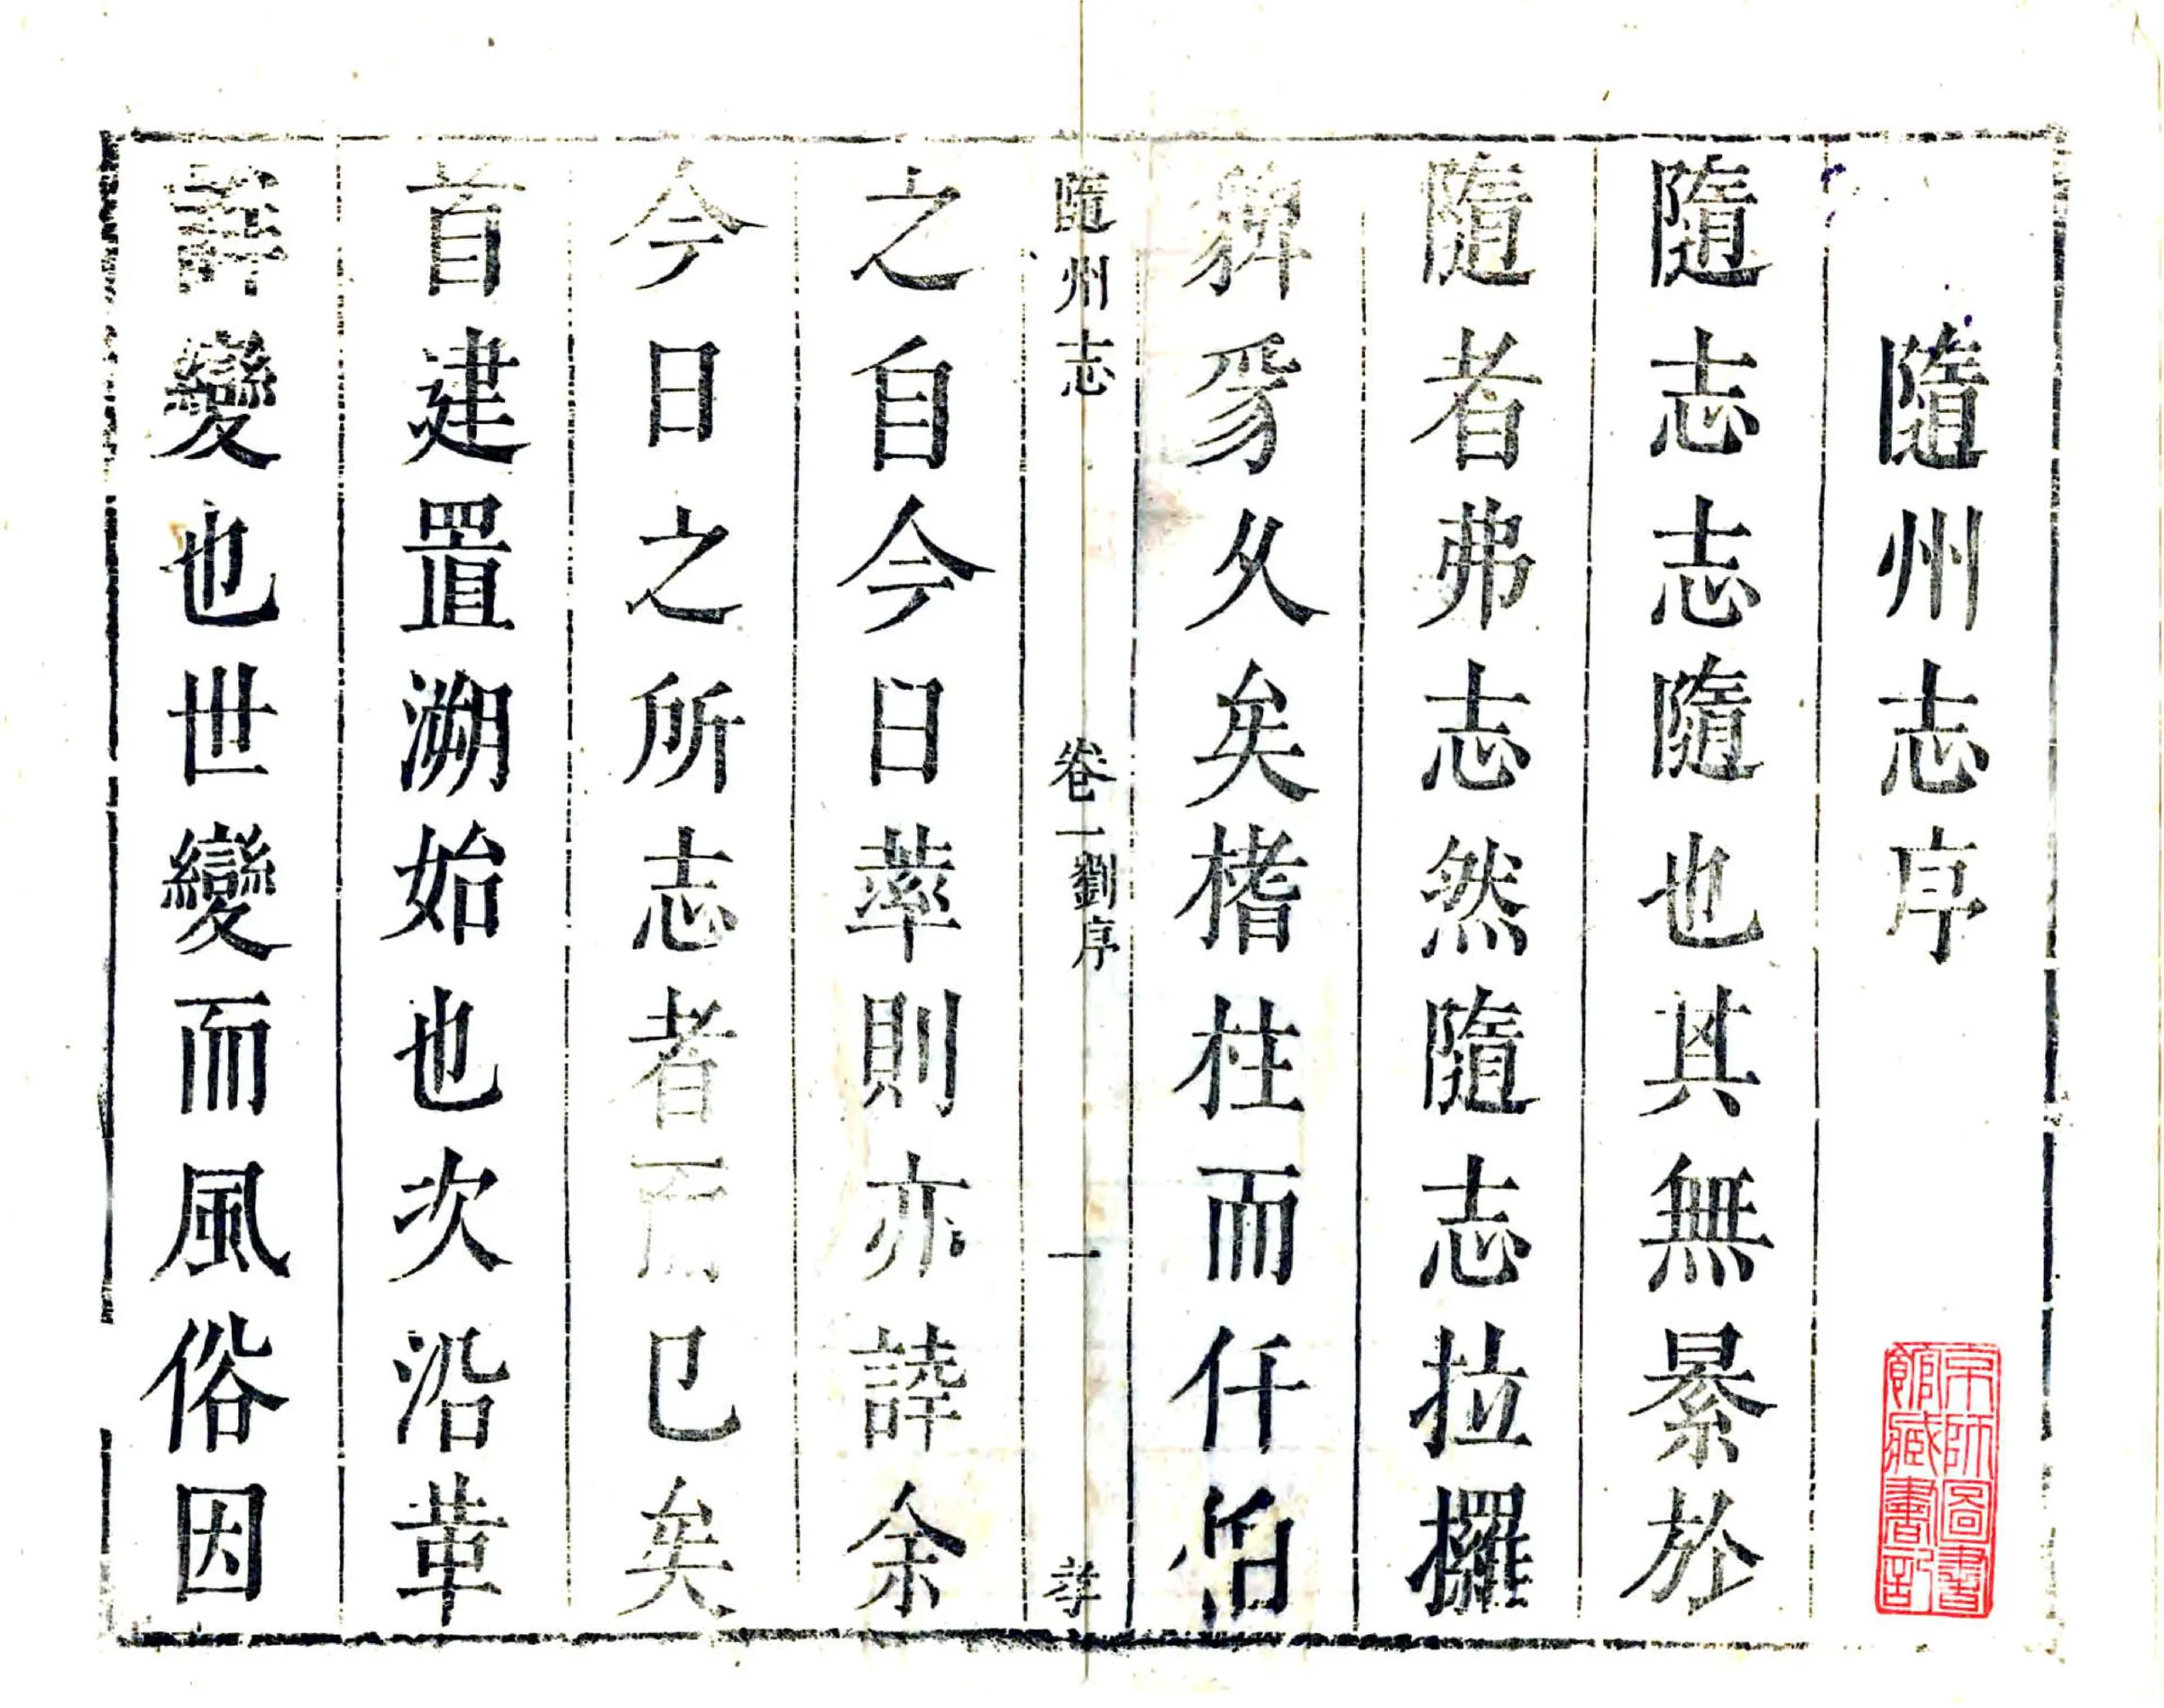 隨州志序
隨志志隨也其無於
隨者弗志然隨志拉攞
久矣榰柱而仟佰
隨州志 卷一 劉序 一 孝
之自今日則亦余
今日之所志者而已矣
首建置溯始也次沿革
詳變也世變而風俗因
京師圖書
館藏書記